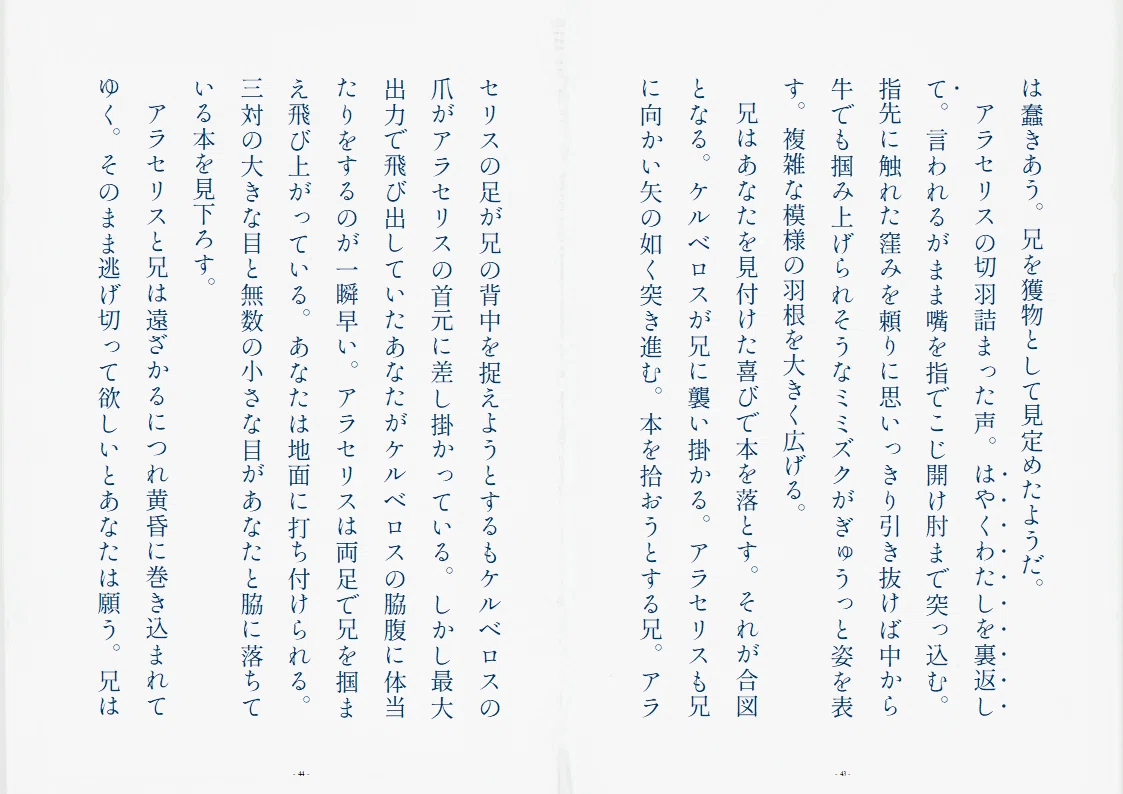 は蠢きあう。兄を獲物として見定めたようだ。
　アラセリスの切羽詰まった声。はやくわたしを裏返し
て。言われるがまま嘴を指でこじ開け肘まで突っ込む。
指先に触れた窪みを頼りに思いっきり引き抜けば中から
牛でも掴み上げられそうなミミズクがぎゅうっと姿を表
す。複雑な模様の羽根を大きく広げる。
　兄はあなたを見付けた喜びで本を落とす。それが合図
となる。ケルベロスが兄に襲い掛かる。アラセリスも兄
に向かい矢の如く突き進む。本を拾おうとする兄。アラ
- 43 -
セリスの足が兄の背中を捉えようとするもケルベロスの
爪がアラセリスの首元に差し掛かっている。しかし最大
出力で飛び出していたあなたがケルベロスの脇腹に体当
たりをするのが一瞬早い。アラセリスは両足で兄を掴ま
え飛び上がっている。あなたは地面に打ち付けられる。
三対の大きな目と無数の小さな目があなたと脇に落ちて
いる本を見下ろす。
　アラセリスと兄は遠ざかるにつれ黄昏に巻き込まれて
ゆく。そのまま逃げ切って欲しいとあなたは願う。兄は
- 44 -